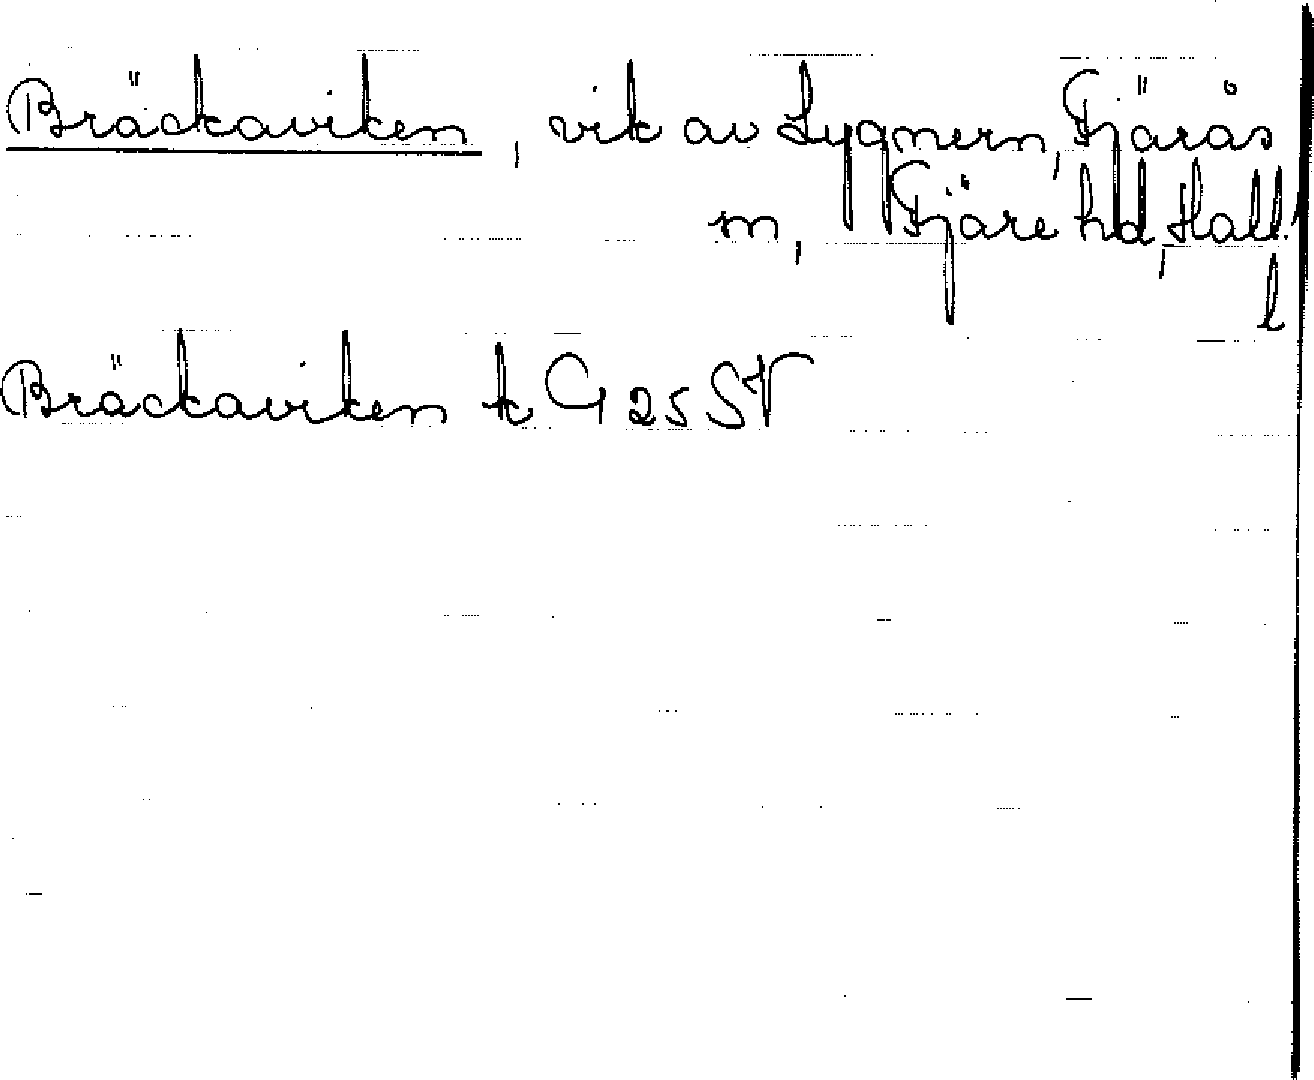 Bräckaviken, vik av Lygnern, Fjärås
m, Fjäre hd, Hall.
l
Bräckaviken tk G 25 SV